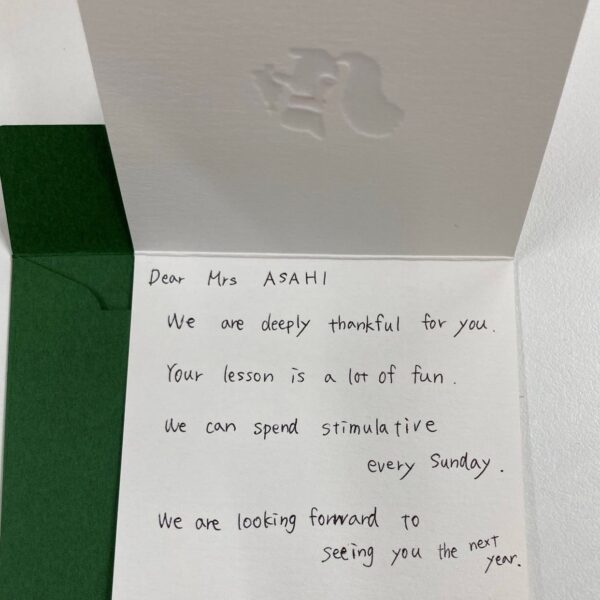 Dear Mrs ASAHI
We are deeply thankful for you.
Your lesson is a lot of fun.
We can spend stimulative
every Sunday.
We are looking forward to
seeing you the next
year.